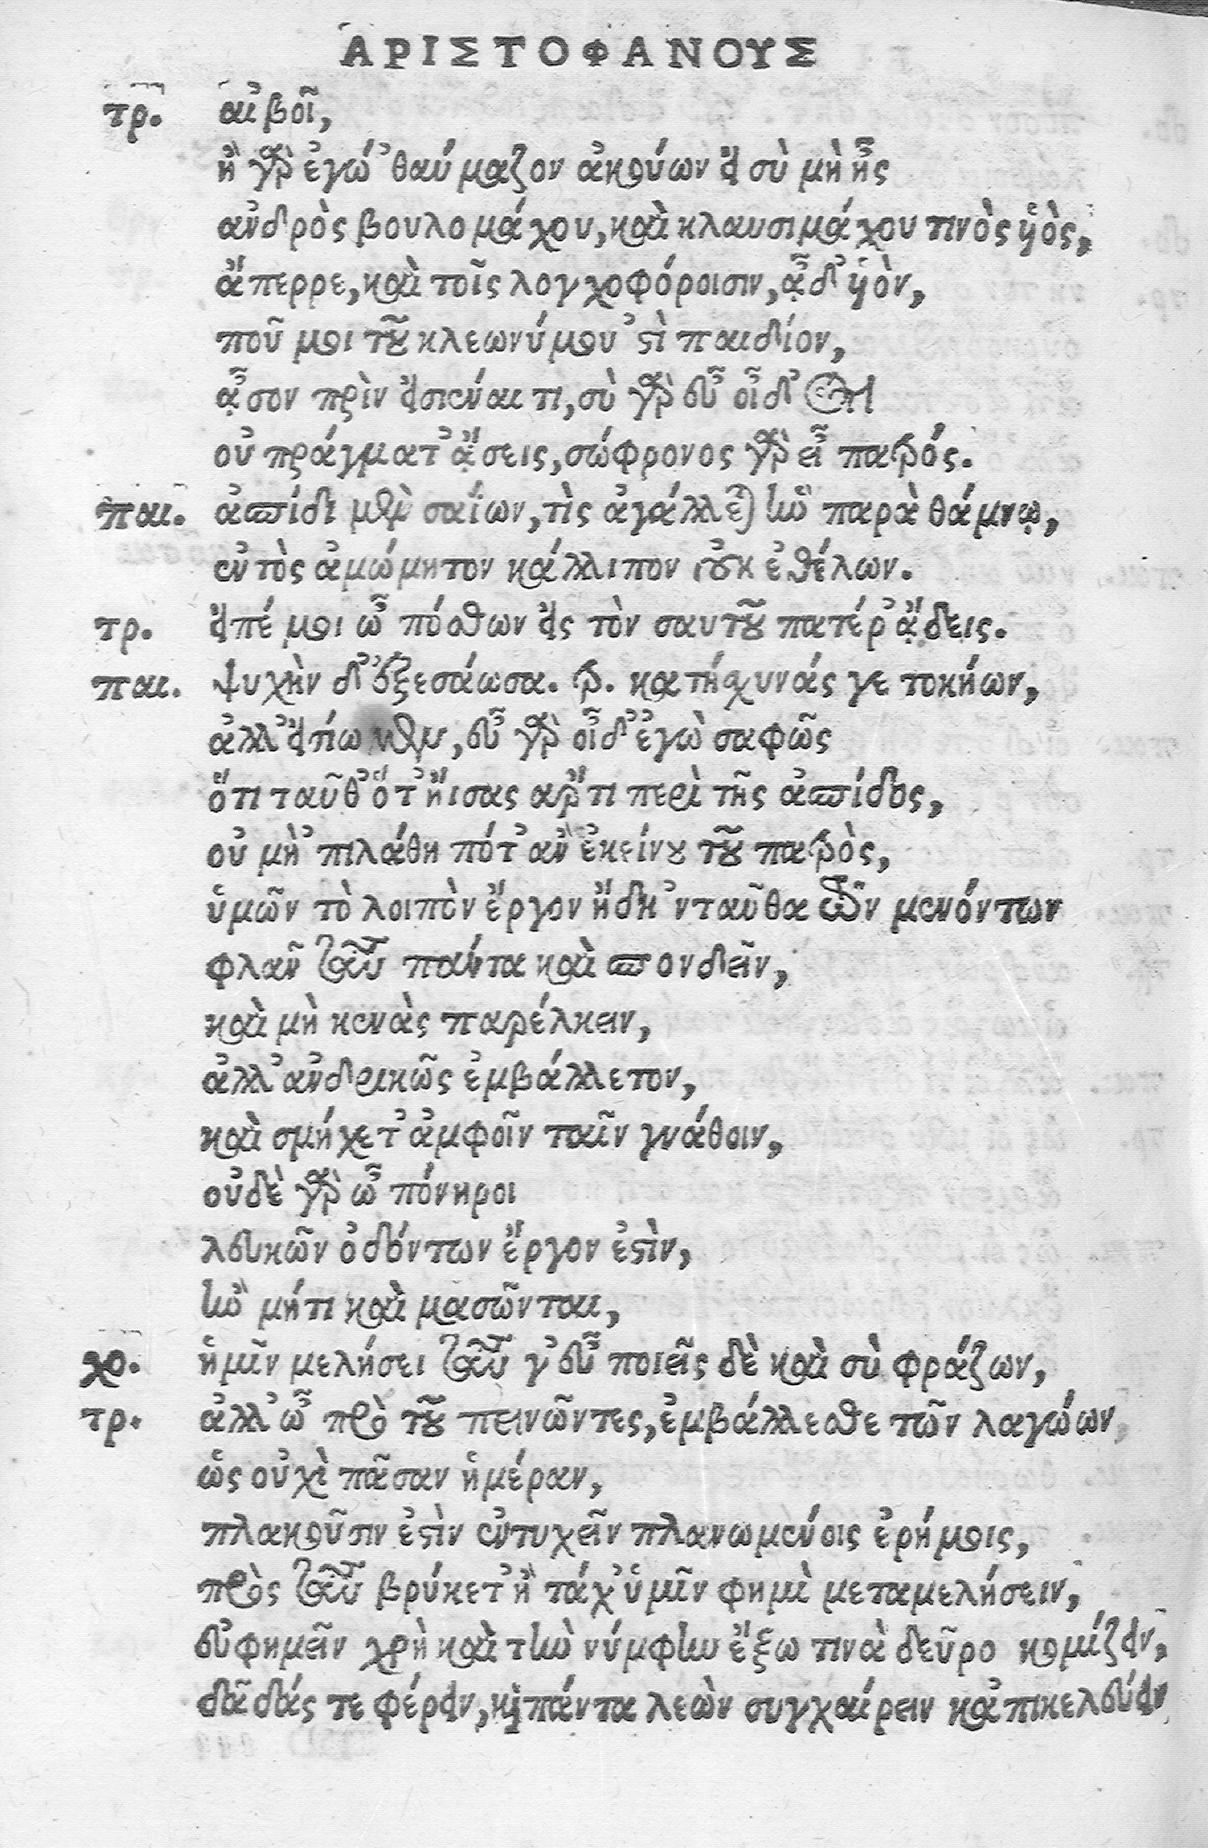 ΑΡΙΣΤΟΦΑΝΟΥΣ
τρ. αἰβοῖ,
ἦ γὰρ ἐγώ 'θαύμαζον ἀκούων εἰ σὺ μὴ ἦς
ἀνδρὸς βουλομάχου, καὶ κλαυσιμάχου τινὸς ὑὸς,
ἄπερρε, καὶ τοῖς λογχοφόροισιν, ᾆδ' ἰὼν,
ποῦ μοι τοῦ κλεωνύμου 'στὶ παιδίον,
ᾆσον πρὶν εἰσιέναι τι, σὺ γὰρ εὖ οἶδ' ὅτι
οὐ πράγματ' ᾄσεις, σώφρονος γὰρ εἶ πατρός.
παι. ἀσπίδι μὲν σαΐων, τὶς ἀγάλλεται ἣν παρὰ θάμνῳ,
ἐντὸς ἀμώμητον κάλλιπον οὐκ ἐθέλων.
τρ. εἰπέ μοι ὦ πόσθων εἰς τὸν σαυτοῦ πατέρ' ᾄδεις.
παι. ψυχὴν δ' ἐξεσάωσα. τρ. κατήσχυνάς γε τοκήων,
ἀλλ' εἰσίωμεν, εὖ γὰρ οἶδ' ἐγὼ σαφῶς
ὅτι ταῦθ' ὅτ' ᾖσας ἄρτι περὶ τῆς ἀσπίδος,
οὐ μὴ 'πιλάθη πότ' ἂν ἐκείνου τοῦ πατρὸς,
ὑμῶν τὸ λοιπὸν ἔργον ἤδη 'νταῦθα τῶν μενόντων
φλᾶν ταῦτα πάντα καὶ σπονδεῖν,
καὶ μὴ κενὰς παρέλκειν,
ἀλλ' ἀνδρικῶς ἐμβάλλετον,
καὶ σμήχετ' ἀμφοῖν ταῖν γνάθοιν,
οὐδὲ γὰρ ὦ πόνηροι
λευκῶν ὀδόντων ἔργον ἐστὶν,
ἢν μήτι καὶ μασῶνται,
χο. ἡμῖν μελήσει ταῦτά γ' εὖ ποιεῖς δὲ καὶ σὺ φράζων,
τρ. ἀλλ' ὦ πρὸ τοῦ πεινῶντες, ἐμβάλλεσθε τῶν λαγώων,
ὡς οὐχὶ πᾶσαν ἡμέραν,
πλακοῦσιν ἐστὶν ἐντυχεῖν πλανωμένοις ἐρήμοις,
πρὸς ταῦτα βρύκετ' ἢ τάχ' ὑμῖν φημὶ μεταμελήσειν,
εὐφημεῖν χρὴ καὶ τὴν νύμφην ἔξω τινὰ δεῦρο κομίζειν,
δᾷδάς τε φέρειν, καὶ πάντα λεὼν συγχαίρειν κἀπικελεύειν